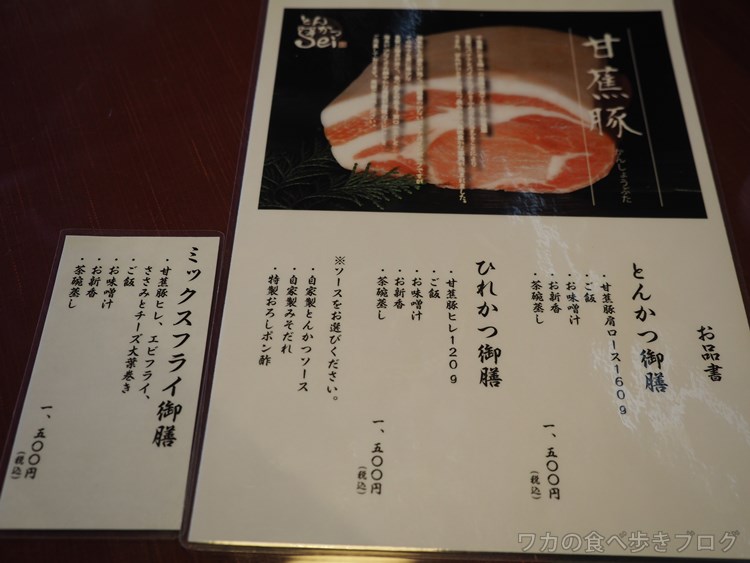 とんかつ
Sei
甘蕉豚
かんしょうぶた
お品書
とんかつ御膳
・甘蕉豚肩ロース160g
・ご飯
・お味噌汁
・お新香
・茶碗蒸し
一、五〇〇円
(税込)
ひれかつ御膳
・甘蕉豚ヒレ120g
・ご飯
・お味噌汁
・お新香
・茶碗蒸し
一、五〇〇円
(税込)
※ソースをお選びください。
・自家製とんかつソース
・自家製みそだれ
・特製おろしポン酢
ミックスフライ御膳
・甘蕉豚ヒレ、エビフライ、
ささみとチーズ大葉巻き
・ご飯
・お味噌汁
・お新香
・茶碗蒸し
一、五〇〇円
(税込)
ワカの食べ歩きブログ